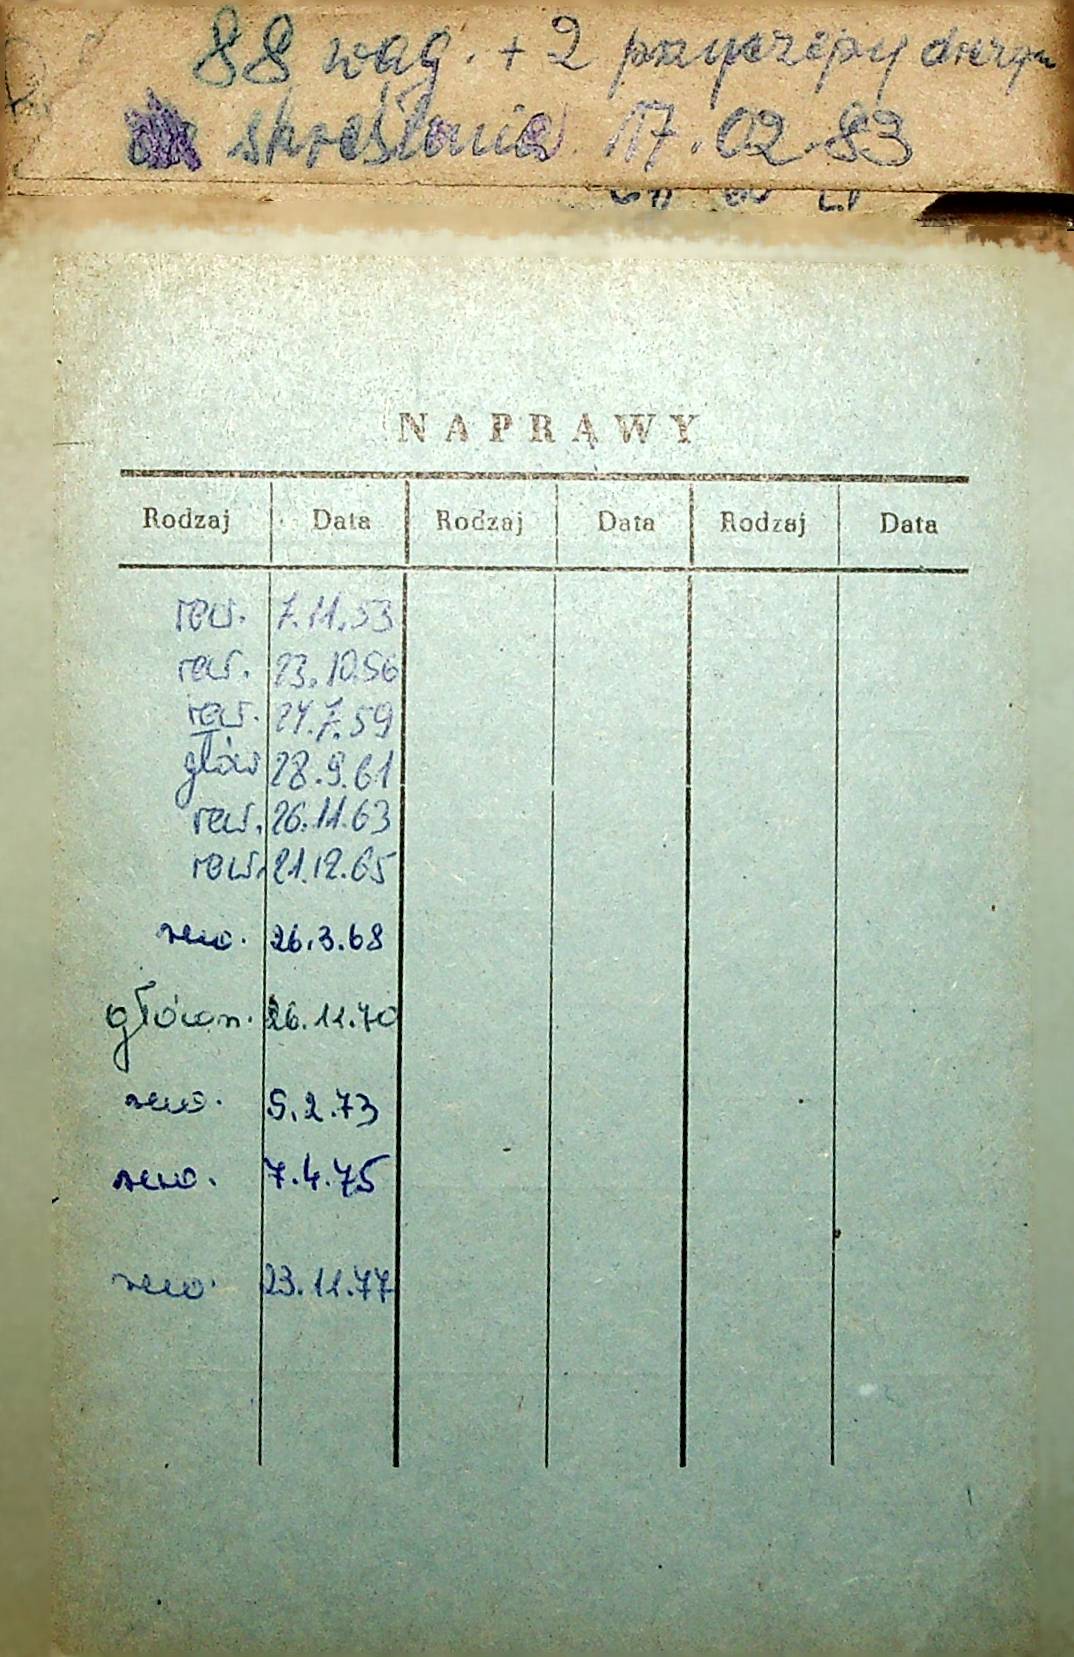 88 wag. + 2 przyczepy drezyn
skreślenia 17.02.83
NAPRAWY
Rodzaj Data Rodzaj Data Rodzaj Data
rew. 7.11.53
rew. 23.10.56
rew. 24.7.59
głów 28.9.61
rew. 26.11.63
rew. 21.12.65
rew. 26.3.68
główn. 26.11.70
rew. 5.2.73
rew. 7.4.75
rew. 23.11.77